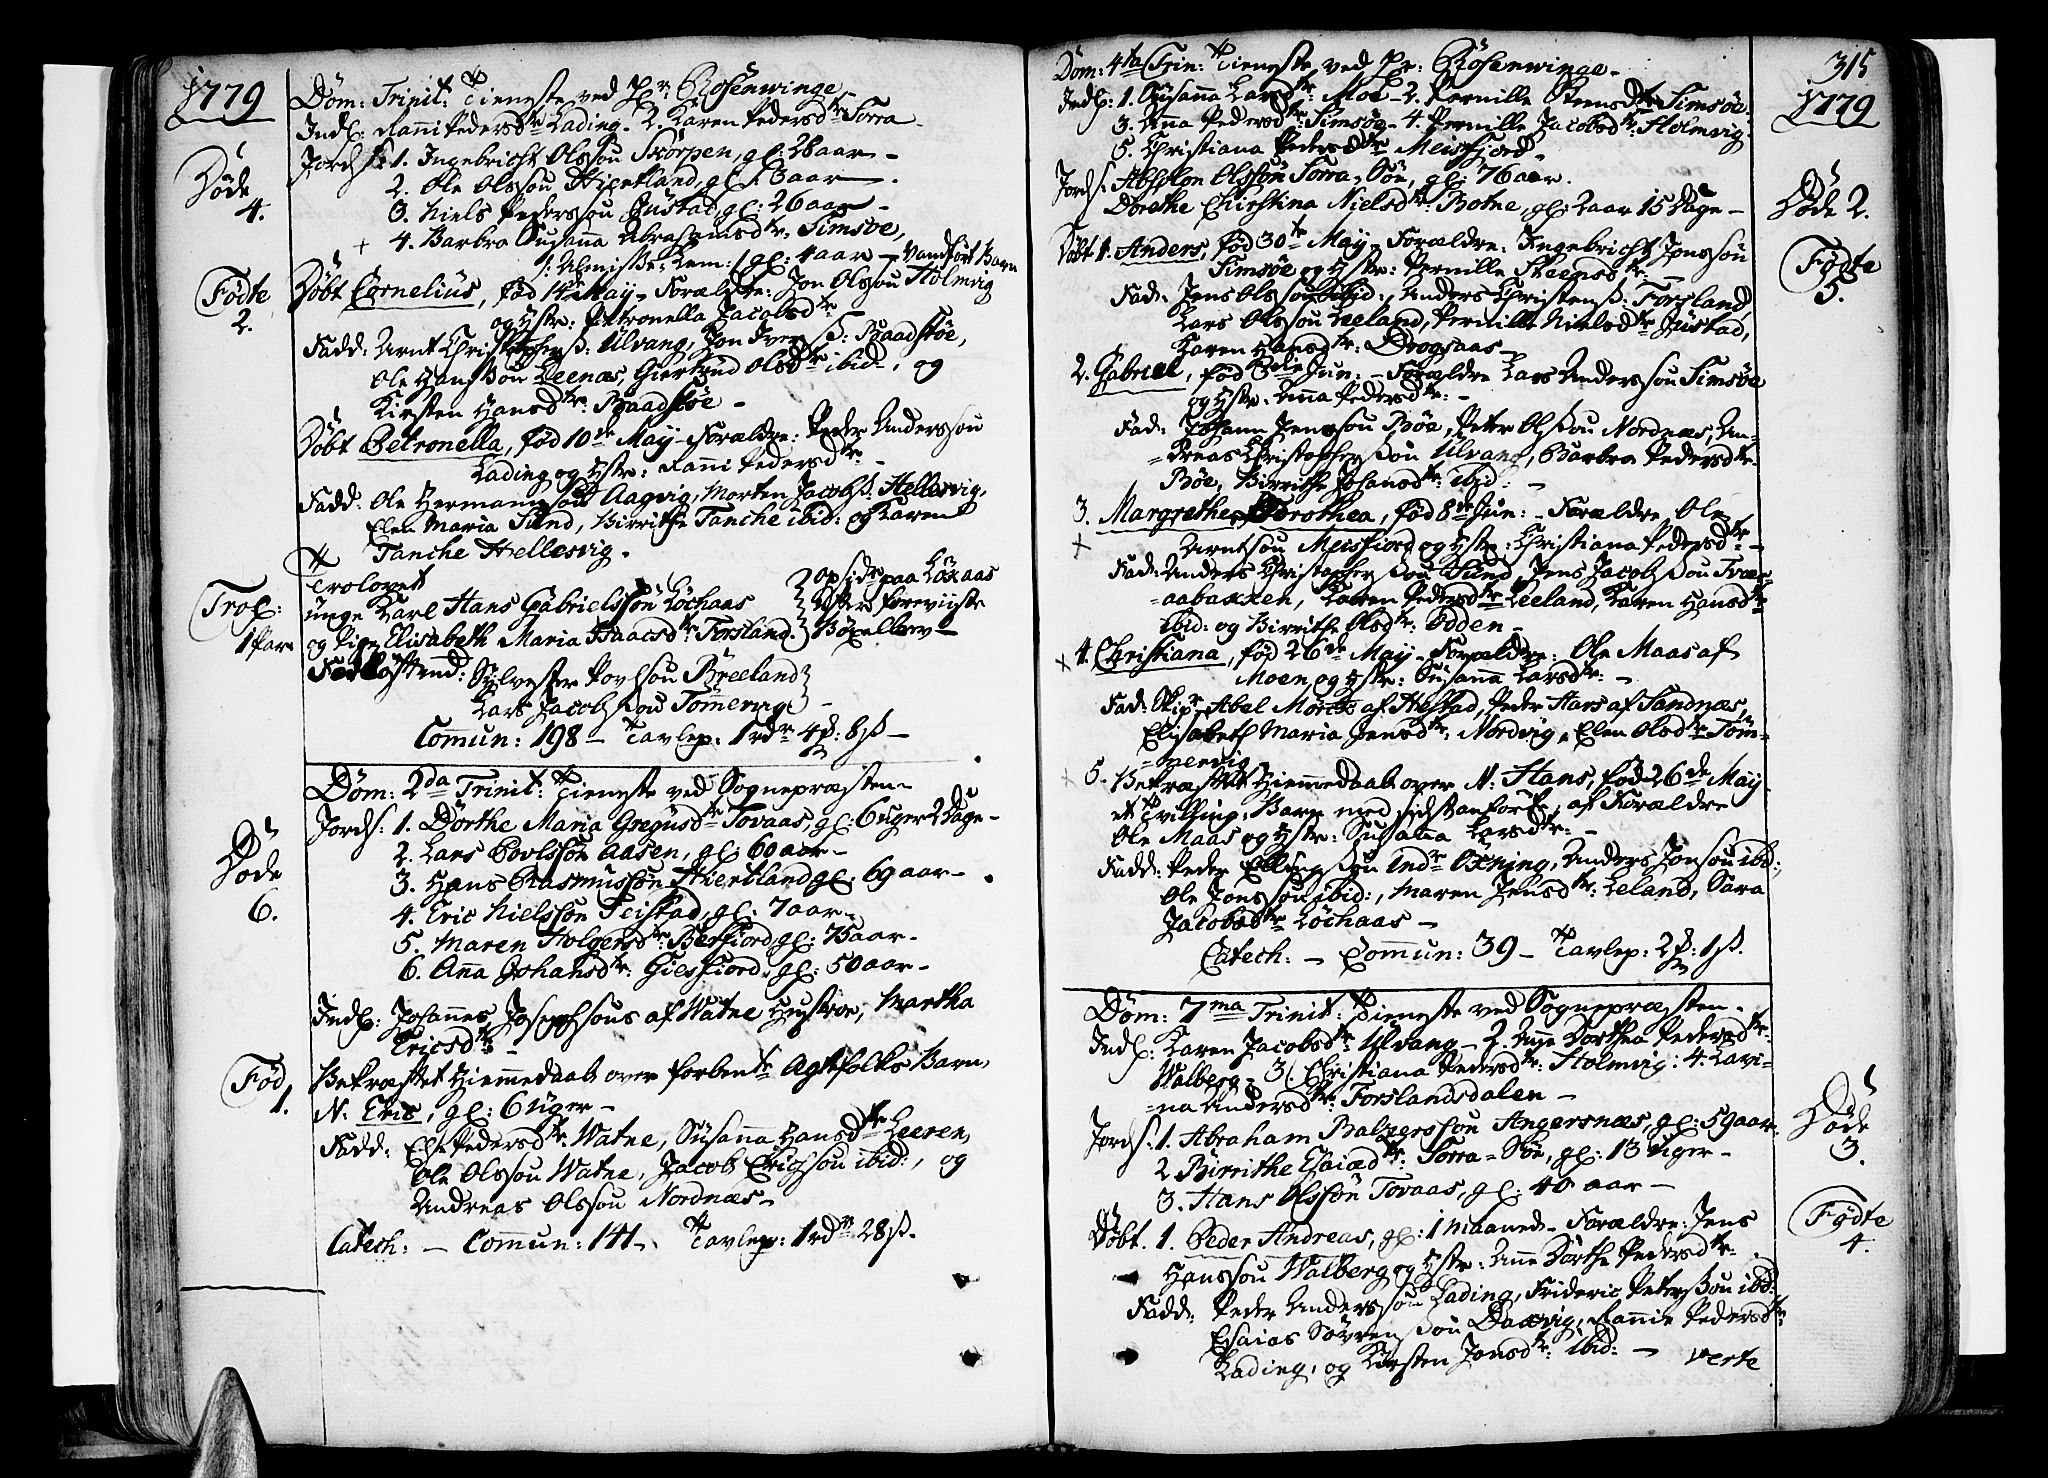 1779
Dom: Trinit: Tieneste ved Hr: Rosenwinge.
Indl: Fanni Pedersdtr Lading. 2. Karen Pedersdtr Torra.
Jords: 1. Ingebricht Olssøn Skörpen, gl: 28 aar –
2. Ole Olssøn Hiertland, gl: 3 aar –
3. Niels Pederssøn Justad, gl: 26 aar –
+ 4. Barbro Susanna Abrahamsdtr: Simsøe,
/: Almisse Lem :/ gl: 4 aar – Vanført Barn
Døde
4.
Døbt Cornelius, fød 14de May – Forældre: Jon Olssøn Holmvig
og Hstr: Petronella Jacobsdtr
Fødte
2.
Fadd: Arnt Christophers: Ulvang, Jon Ivers: Baadstøe,
Ole Hanssøn Leenæs, Giertrud Olsdtr ibid:, og
Kirsten Hansdtr: Baadstøe –
Døbt Petronella, fød 10de May – Forældre: Peder Anderssøn
Lading og Hstr: Fanni Pedersdtr –
Fadd: Ole Hermanssøn Aagvig, Morten Jacobs: Hellesvig,
Elen Maria Sund, Birrithe Tanche ibid: og Karen
Tanche Hellesvig.
Trolovet
Trol:
1 Par
unge Karl Hans Gabrielssøn Löchaas
og Pige Elisabeth Maria Isaacsdtr: Forsland.
Opsidr: paa Löxaas
efter foreviiste
Böxelbrev –
Forløftsmænd: Sylvester Povlssøn Breeland
Lars Jacobssøn Tömmervig –
Commun: 198 – Tavlep: 1 rdr 4 : 8 s –
Dom: 2da Trinit: Tieneste ved Sognepræsten –
Jords: 1. Dorthe Maria Gregusdtr Tovaas, gl: 6 uger 2 Dage –
2. Lars Povlssøn Aasen, gl: 60 aar –
3. Hans Rasmussøn Hiertland gl: 69 aar –
4. Eric Nielssøn Teistad, gl: 7 aar –
5. Maren Holgersdtr: Berfiord gl: 75 aar –
6. Anna Johansdtr: Giesfiord, gl: 50 aar –
Døde
6.
Indl: Johannes Josephsøns af Watne Hustroe, Martha
Ericsdtr –
Fød
1.
Bekræftet Hiemmedaab over forbente Agtefolks Barn,
N: Eric, gl: 6 uger –
Fadd: Els Pedersdtr: Watne, Susanna Hansdtr Leeren,
Ole Olssøn Watne, Jacob Erichsøn ibid:, og
Andreas Olssøn Nordnæs –
Catech: – Commun: 141 – Tavlep: 1 rdr 28 s.
315
1779
Dom: 4ta Trin: Tieneste ved Hr: Rosenwinge –
Indl: 1. Susanna Larsdtr: Moe – 2. Pernille Steensdtr Simsøe
3. Anna Pedersdtr: Simsøe – 4. Pernille Jacobsdtr: Holmvig
5. Christiana Pedersdtr Meisfjord –
Jords: Absolon Olssøn Torra-Søe, gl: 76 aar.
Dorethe Christina Nielsdtr: Botne, gl: 2 aar 15 Dage –
Døde 2.
Døbt 1. Anders, fød 30te May – Forældre: Ingebricht Jenssøn
Simsøe og Hstr: Pernille Steensdtr: –
Fødte
5.
Fad: Jens Olssøn ibid:, Anders Christens: Forsland,
Lars Olssøn Leeland, Pernille Nielsdtr Justad,
Karen Hansdtr: Drogsaas –
2. Gabriel, fød 3de Jun: – Forældre Lars Anderssøn Simsøe
og Hstr: Anna Pedersdtr: –
Fad: Johann Jenssøn Bøe, Peter Olssøn Nordnæs, An-
=dreas Christopherssøn Ulvang, Barbro Pedersdtr
Bøe, Birrithe Johansdtr: ibid: –
3. Margrethe Dorothea, fød 8de Jun: – Forældre, Ole
+ Arntsøn Meisfiord og Hstr: Christiana Pedersdtr –
Fad: Anders Christopherssøn Sund, Jens Jacobssøn Tvær-
=aabakken, Karen Pedersdtr Leeland, Karen Hansdtr
ibid: og Birrithe Olsdtr: Odden –
+ 4. Christiana, fød 26de May – Forældre: Ole Maas af
Moen og Hstr: Susanna Larsdtr: –
Fad: Skipr. Abel Morch af Alstad, Peder Hans af Sandnæs,
Elisabeth Maria Jensdtr: Nordvig, Elen Olsdtr Töm-
=mervig
+ 5. Bekræftet Hiemmedaab over N: Hans, fød 26de May
et Tvilling-Barn med sidstanførte, af Forældre
Ole Maas og Hstr: Susanna Larsdtr: –
Fadd: Peder Ellingssøn Indr Oxning, Anders Jonsøn ibid:,
Ole Jonssøn ibid:, Maren Jensdtr: Leland, Sara
Jacobsdtr Löchaas –
Catech: – Commun: 39 – Tavlep: 2 : 1 s.
Dom: 7ma Trinit: Tieneste ved Sognepræsten –
Indl: Karen Jacobsdtr Ulvang – 2. Anne Dorthea Pedersdtr:
Walberg – 3. Christiana Pedersdtr: Holmvig: 4. Lavi-
=na Andersdtr: Forslandsdalen –
Jords: 1. Abraham Balzerssøn Angersnæs, gl: 59 aar.
2. Birrithe Esaiædtr: Torra-Søe, gl: 13 uger –
3. Hans Olssøn Tovaas, gl: 40 aar –
Døde
3.
Døbt. 1. Peder Andreas, gl: 1 Maaned – Forældre: Jens
Hanssøn Walberg og Hstr: Ane Dorthe Pedersdtr: –
Fødte
4.
Fadd: Peder Anderssøn Lading, Frideric Peterssøn ibid:
Esaias Sörrenssøn Daavig, Fannie Pedersdtr:
Lading, og Kirsten Jonsdtr: ibid: – verte